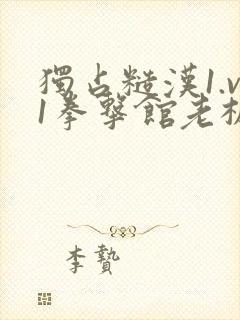 獨占糙漢1.v
1拳擊館老板
李贄